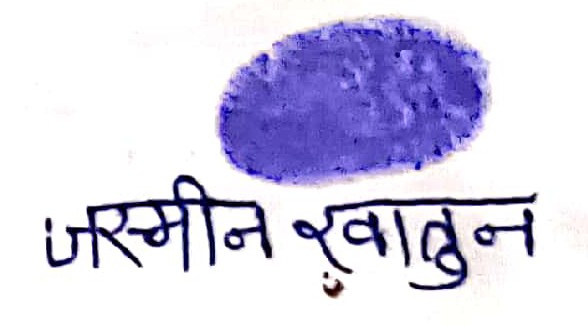 जस्मीन खातुन